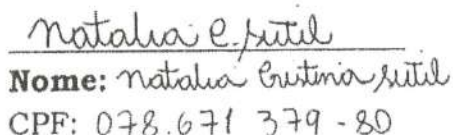 Natalia C. Sutil
Nome: Natalia Cristina Sutil
CPF: 078.671 379-80